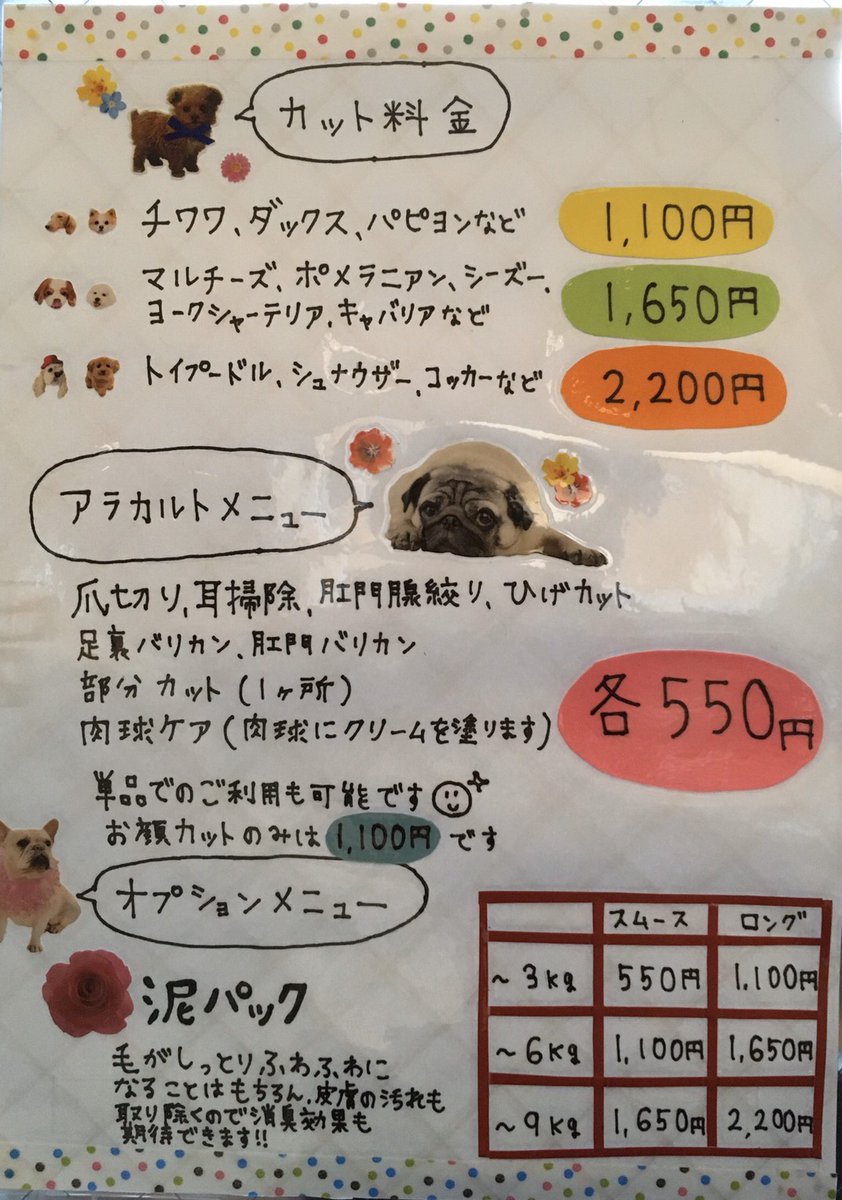 カット料金
チワワ、ダックス、パピヨンなど 1,100円
マルチーズ、ポメラニアン、シーズー、
ヨークシャーテリア、キャバリアなど 1,650円
トイプードル、シュナウザー、コッカーなど 2,200円
アラカルトメニュー
爪切り、耳掃除、肛門腺絞り、ひげカット
足裏バリカン、肛門バリカン
部分カット(1ヶ所)
肉球ケア(肉球にクリームを塗ります) 各550円
単品でのご利用も可能です
お顔カットのみは1,100円です
オプションメニュー
泥パック
毛がしっとり、ふわふわに
なることはもちろん、皮膚の汚れも
取り除くので消臭効果も
期待できます!!
スムース ロング
~3kg 550円 1,100円
~6kg 1,100円 1,650円
~9kg 1,650円 2,200円